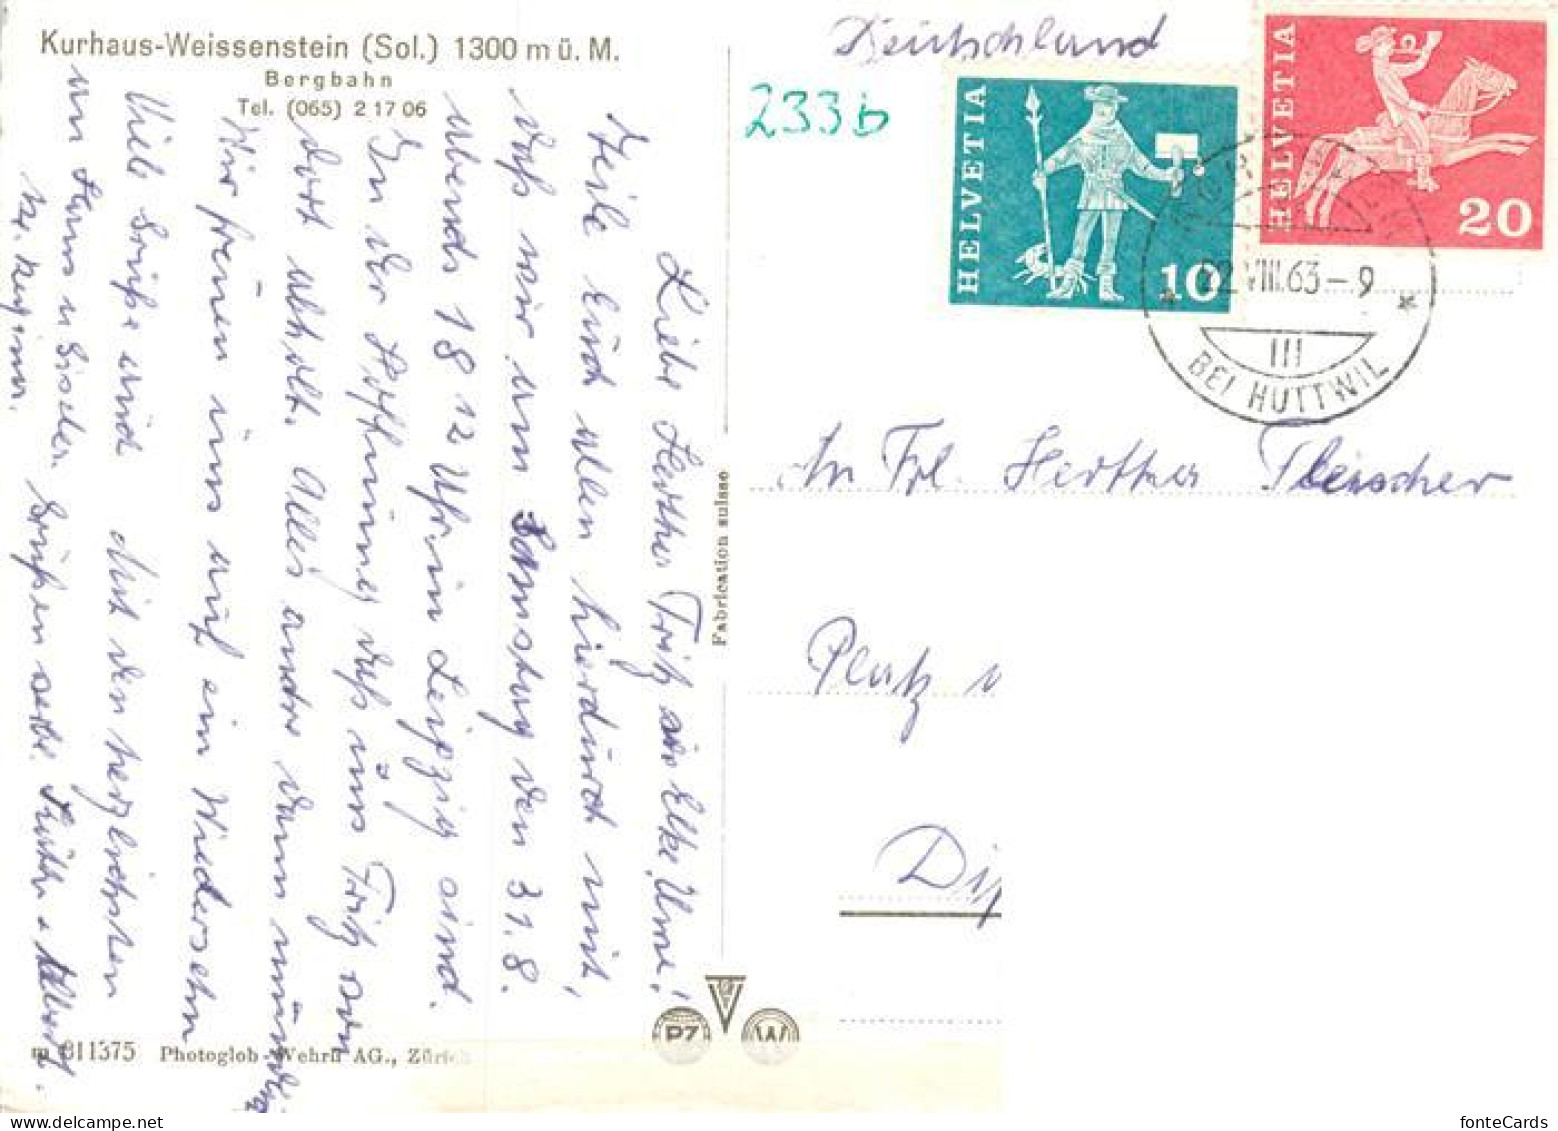 Kurhaus-Weissenstein (Sol.) 1300 m ü. M.
Bergbahn
Tel. (065) 2 17 06
Liebe Herther Fritz Elke, Urne!
Teile Euch allen hierdurch mit,
daß wir am Samstag den 31.8.
abends 18 12 Uhr in Leipzig sind.
In der Hoffnung daß uns Fritz von
dort abholt. Alles andre dann mündlig
Wir freuen uns auf ein Wiedersehn
Viele Grüße und Mit den herzlichsten
an Hans u Gisela. Grüßen
Regina.
Fabrication suisse
PZ W
m 811375 Photoglob-Wehrli AG., Zürich
Deutschland
233b
HELVETIA 10
HELVETIA 20
22.VIII.63-9
III
BEI HUTTWIL
An Frl. Herther Fleischer
Platz
Dip
fonteCards